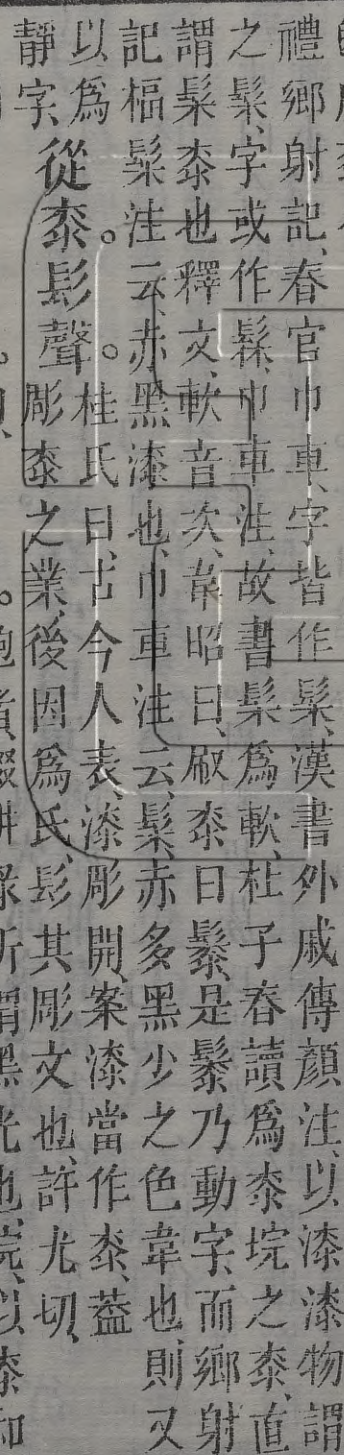 禮鄉射記、春官巾車、字皆作髤、漢書外戚傳顏注、以漆漆物謂
之髤、字或作髹、巾車注、故書髤爲軟、杜子春讀爲桼垸之桼、直
謂髤桼也、釋文、軟音次、韋昭曰、㕞桼曰䰍、是䰍乃動字、而鄉射
記楅髤注云、赤黑漆也、巾車注云、髤、赤多黑少之色韋也、則又
以爲
靜字、
從桼。髟聲。
桂氏曰、古今人表、漆彫開、案漆當作桼、蓋
彫桼之業、後因爲氏、髟其彫文也、許尤切、